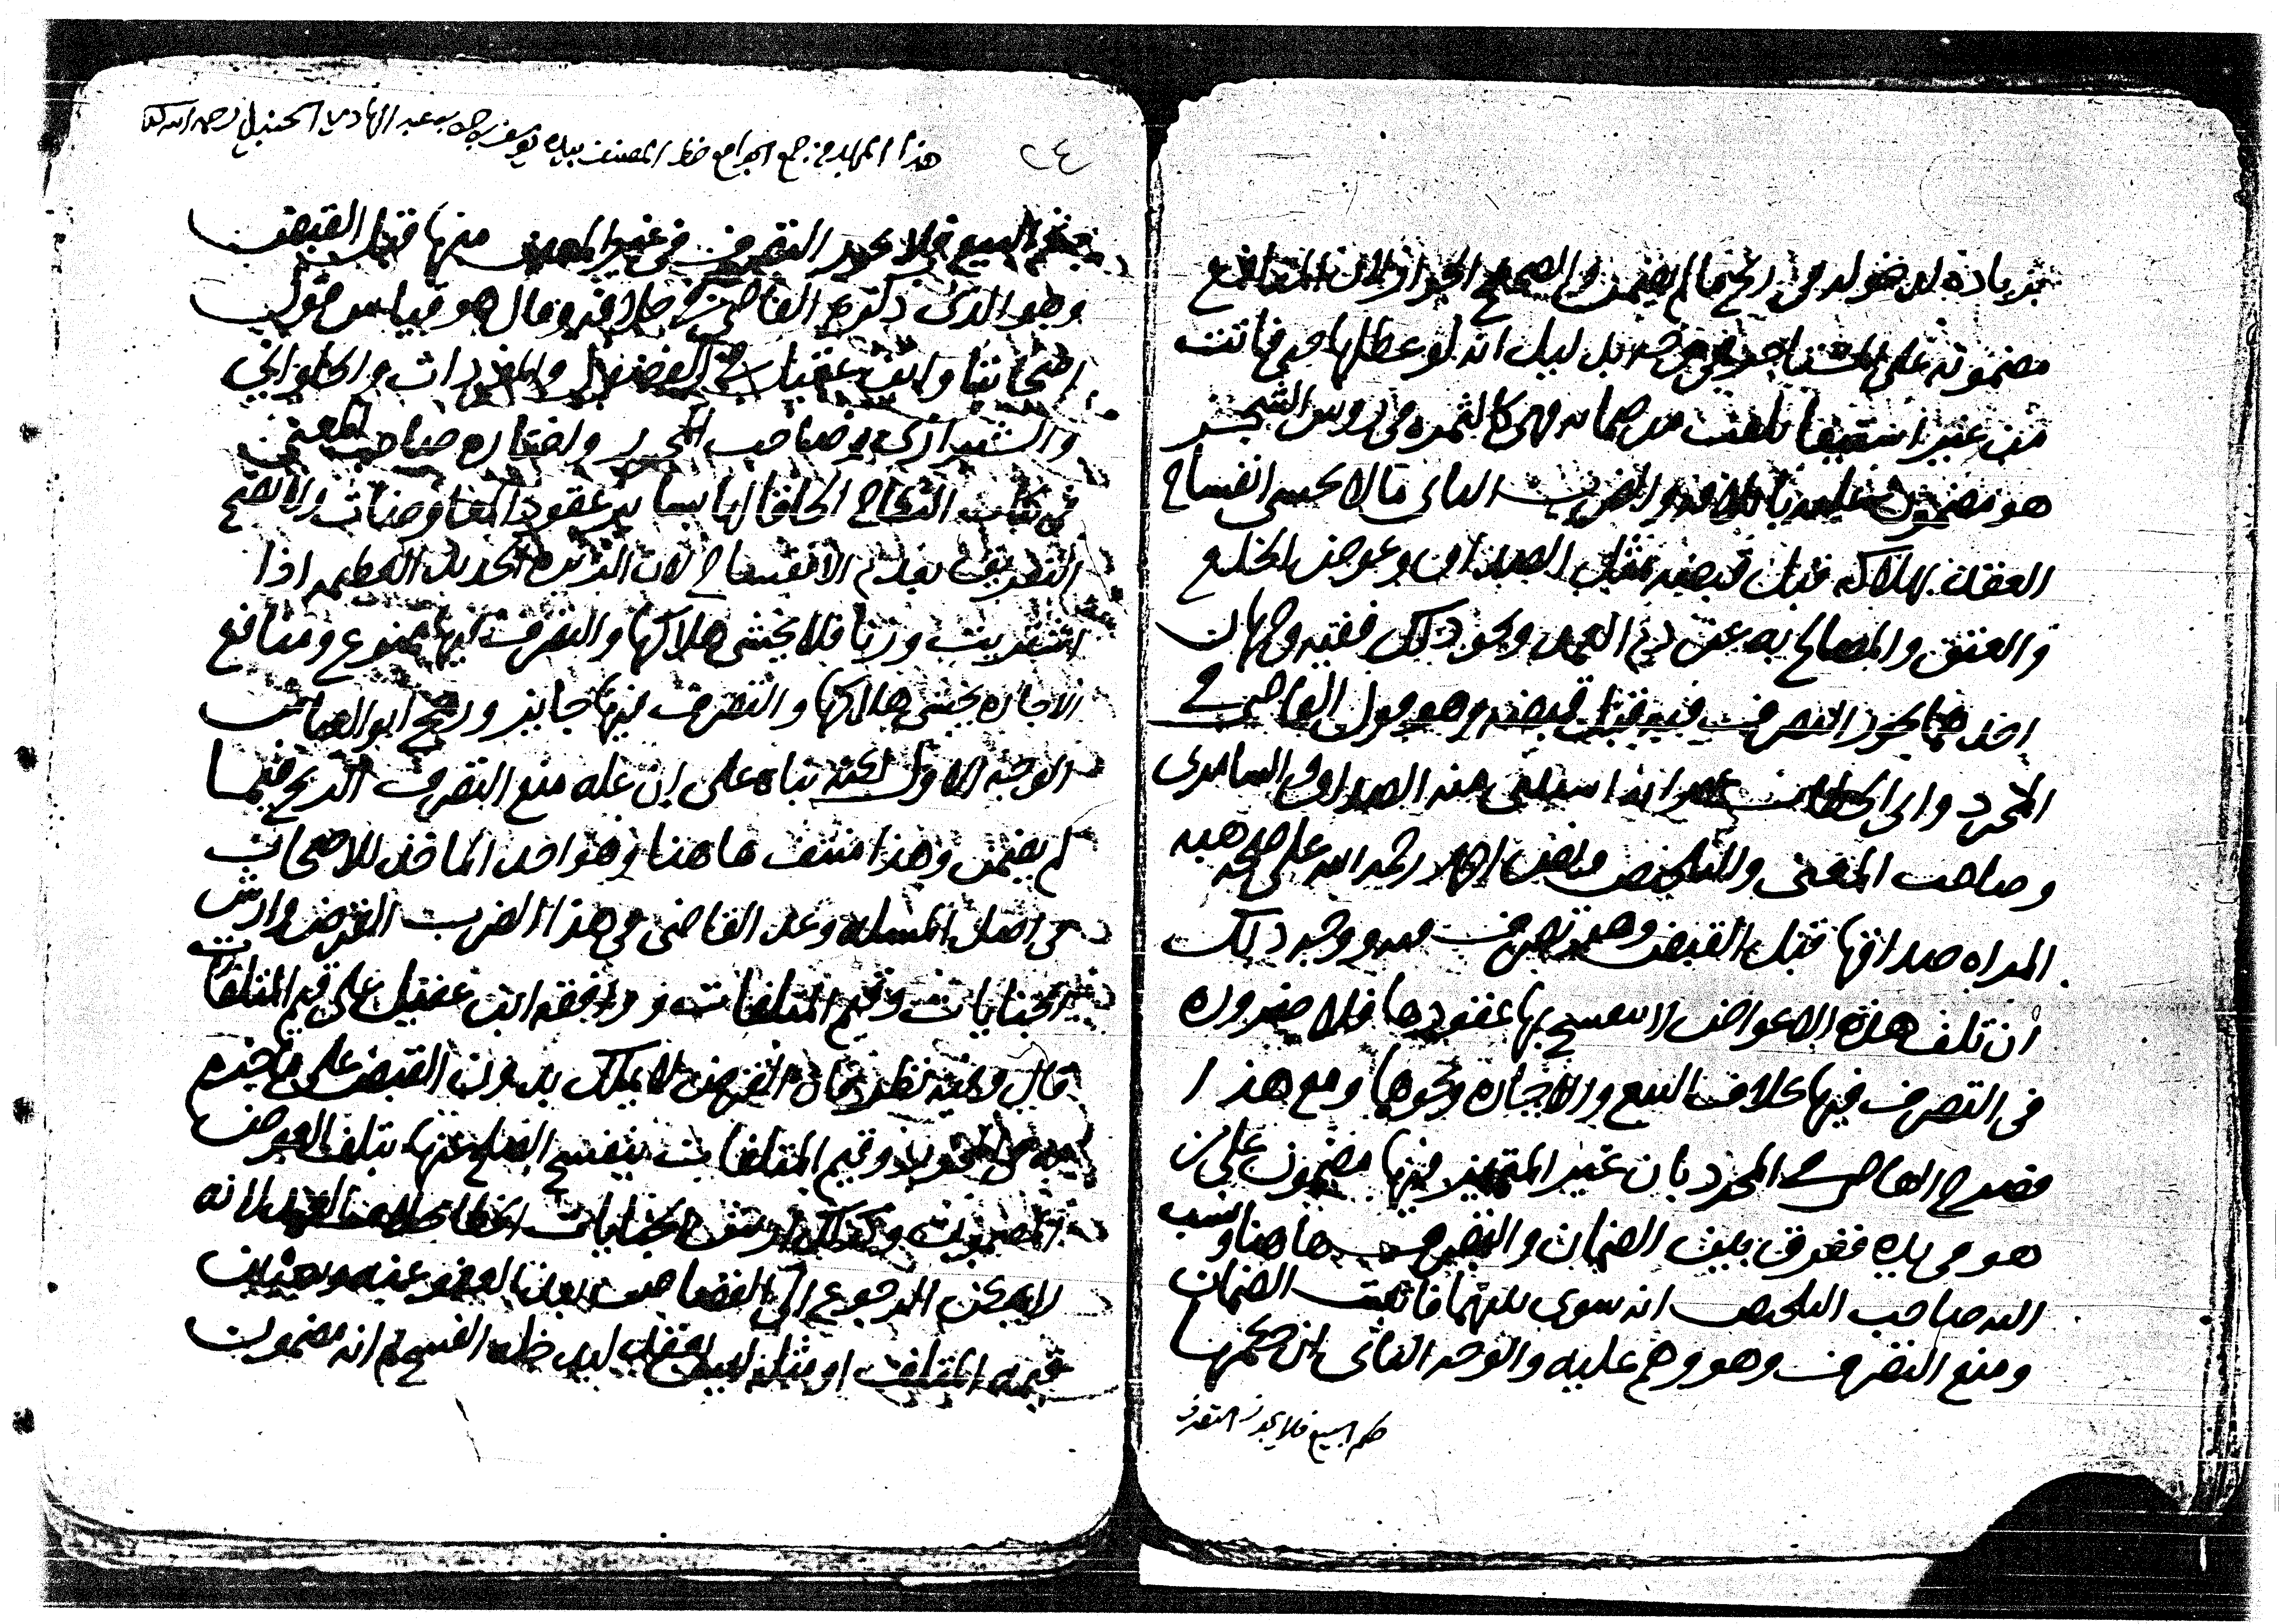 بزيادة لدخوله في ربح ما لم يضمن والصحيح الجواز لان المنافع
مضمونة على المستاجر في وجه بدليل انه لو عطلها حتى فاتت
من غير استيفا تلفت من ضمانه فهي كالثمرة في روس الشجر
هو مضمون عليه باتلافه والضرب الثاني ما لا يخشى انفساخ
العقد بهلاكه قبل قبضه مثل الصداق وعوض الخلع
والعتق والمصالح به عن دم العمد ونحو ذلك ففيه وجهان
احدهما يجوز التصرف فيه قبل قبضه وهو قول القاضي في
المجرد وابي الخطاب غير انه استثنى منه الصداق والسامري
وصاحب المغني والتلخيص ونص احمد رحمه الله على صحة هبة
المراه صداقها قبل القبض وهو تصرف فيه ووجه ذلك
ان تلف هذه الاعواض لا ينفسخ بها عقودها فلا ضرورة
في التصرف فيها بخلاف البيع والاجارة ونحوها ومع هذا
فصرح القاضي في المجرد بان غير المتميز فيها مضمون على من
هو في يده ففرق بين الضمان والتصرف هاهنا ونسب
اليه صاحب التلخيص انه سوى بينهما فاثبت الضمان
ومنع التصرف وهو وهم عليه والوجه الثاني ان حكمها
حكم البيع فلا يجوز التصرف
هذا المجلد من جمع الجوامع خط المصنف بيده يوسف بن حسن بن عبد الهادي الحنبلي رحمه الله
٢٤
حكم البيع فلا يجوز التصرف في غير المتعين منها قبل القبض
وهو الذي ذكره القاضي في خلافه وقال هو قياس قول
اصحابنا وابن عقيل في الفصول والمفردات والحلواني
والشيرازي وصاحب المحرر واختاره صاحب المغني
في كتاب النكاح الحاقا لها بساير عقود المعاوضات ولا يصح
التفريق بعدم الانفساخ لان الزبرة الحديد العظيمة اذا
اشتريت وزنا فلا يخشى هلاكها والتصرف فيها ممنوع ومنافع
الاجارة يخشى هلاكها والتصرف فيها جايز ورجح ابو العباس
الوجه الاول لكنه بناه على ان علة منع التصرف الربح فيما
لم يضمن وهذا منتف هاهنا وهو احد الماخذ للاصحاب
في اصل المسله وعد القاضي في هذا الضرب القرض وارش
الجنايات وقيم المتلفات ووافقه ابن عقيل على قيم المتلفات
قال وفيه نظر فان القرض لا يملك بدون القبض على ما جزم
به في المجرد وقيم المتلفات ينفسخ الصلح عنها بتلف العوض
المضمون وكذلك ارش الجنايات الخطا بخلاف العمد لانه
لا يمكن الرجوع الى القصاص بعد العفو عنه وضمان
قيمة المتلف او مثله ليس بعقد ليدخله الفسخ ثم انه مضمون